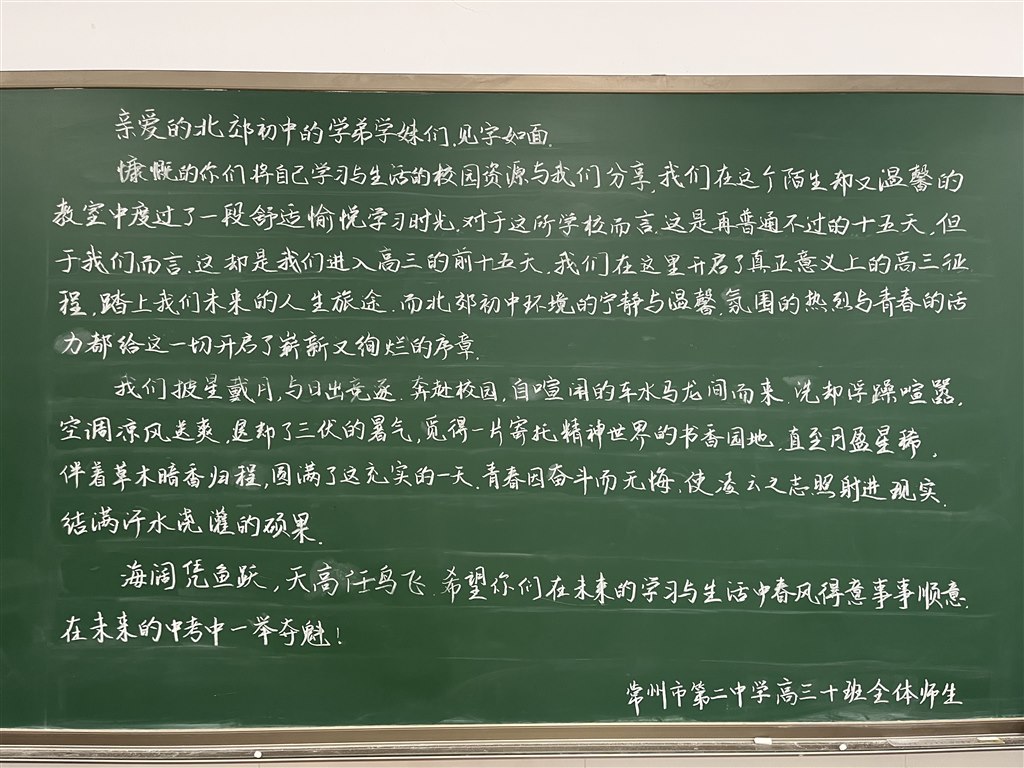 亲爱的北郊初中的学弟学妹们,见字如面.
慷慨的你们将自己学习与生活的校园资源与我们分享.我们在这个陌生却又温馨的
教室中度过了一段舒适愉悦学习时光.对于这所学校而言.这是再普通不过的十五天,但
于我们而言.这却是我们进入高三的前十五天.我们在这里开启了真正意义上的高三征
程,踏上我们未来的人生旅途.而北郊初中环境的宁静与温馨,氛围的热烈与青春的活
力都给这一切开启了崭新又绚烂的序章.
我们披星戴月,与日出竞逐.奔赴校园,自喧闹的车水马龙间而来.洗却浮躁喧嚣,
空调凉风送爽,退却了三伏的暑气,觅得一片寄托精神世界的书香园地.直至月盈星稀,
伴着草木暗香归程,圆满了这充实的一天.青春因奋斗而无悔,使凌云之志照射进现实.
结满汗水浇灌的硕果.
海阔凭鱼跃,天高任鸟飞.希望你们在未来的学习与生活中春风得意事事顺意.
在未来的中考中一举夺魁!
常州市第二中学高三十班全体师生